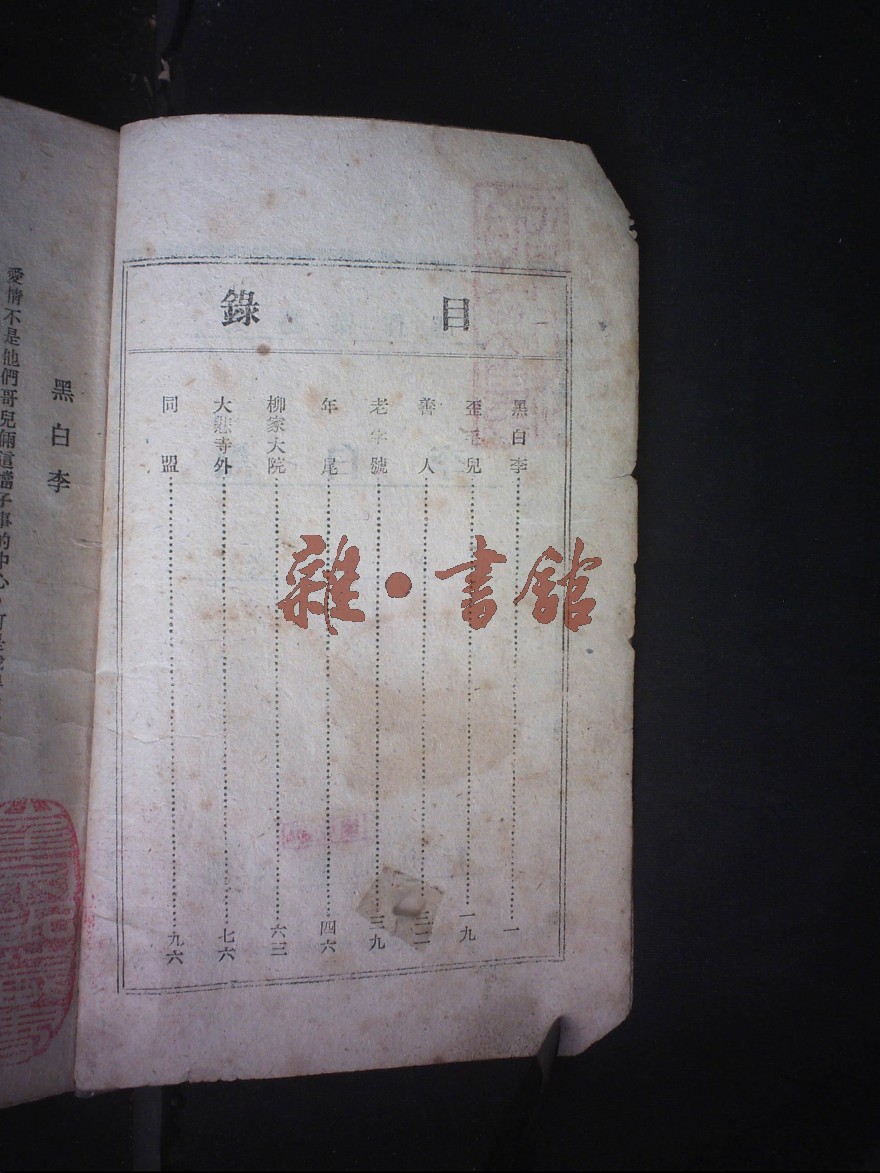 目錄
黑白李……一
歪毛兒……一九
善人……三二
老字號……三九
年尾……四六
柳家大院……六三
大悲寺外……七六
同盟……九六
雜·書舘
黑白李
愛情不是他們哥兒倆這檔子事的中心